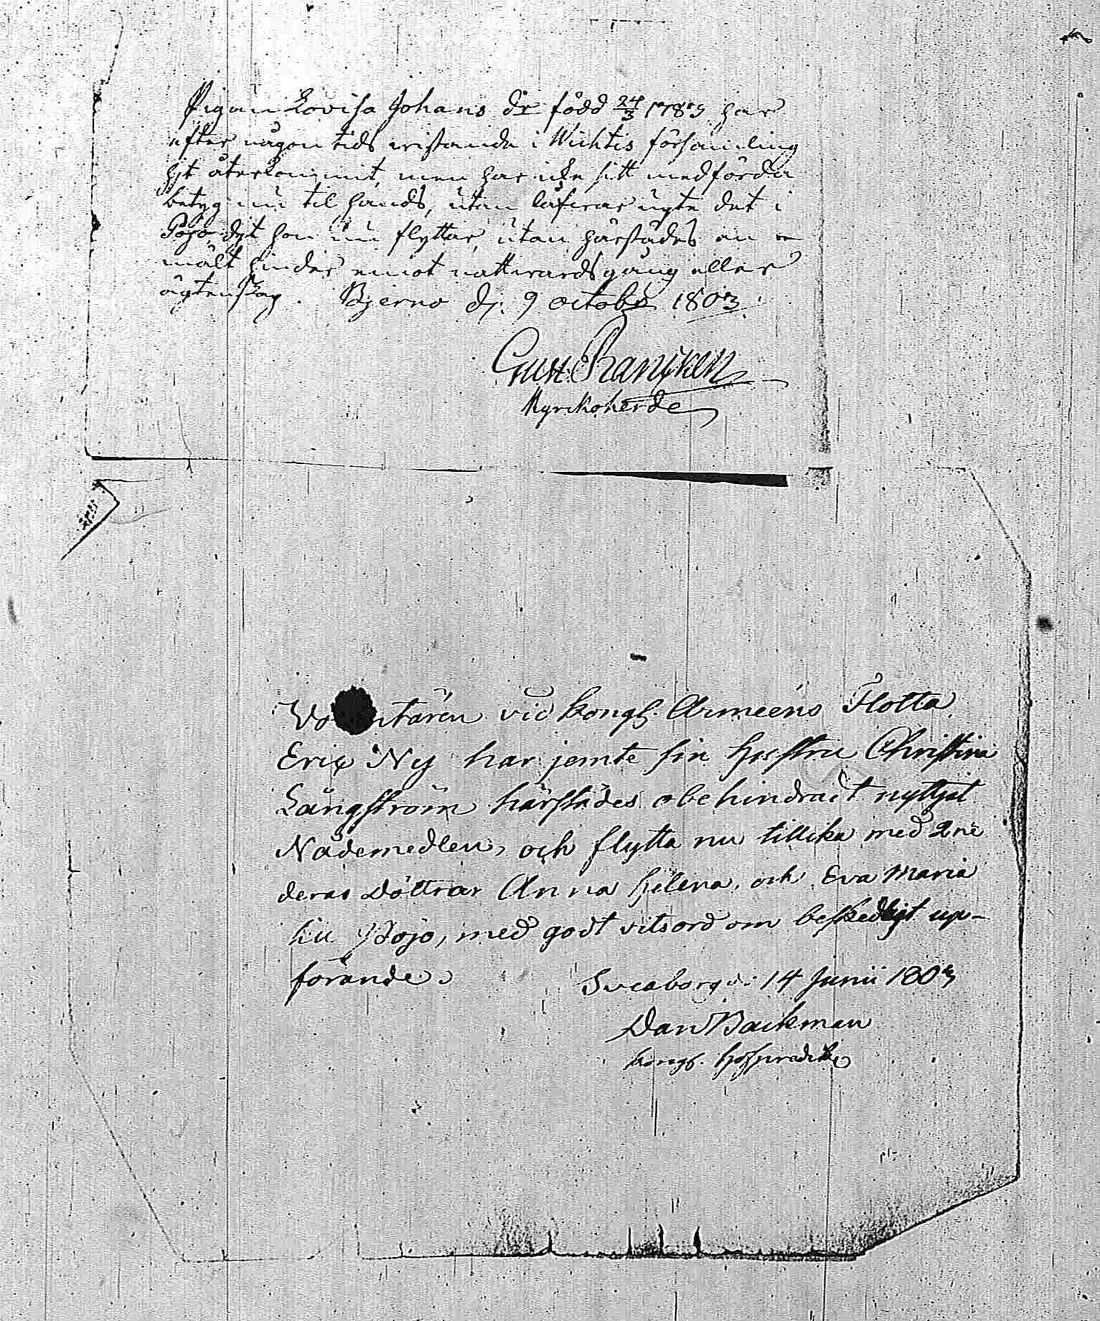 Pigan Lovisa Johans dr född 24/3 1783 har
efter någon tids vistande i Wichtis församling
hit återkommit, men har icke sitt medförda
betyg nu til hands, utan lärer
Pojo, dit hon nu flyttar, utan härstädes an-
mält hinder emot nattvardsgång eller
ägtenskap. Bjerno d. 9 octobr 1803.
Gust. Rancken
Kyrckoherde
Vo ntären vid kongl. Armeens Flotta
Eric Ny har jemte sin hustru Christina
Långström härstädes obehindradt nyttjat
Nådemedlen, och flytta nu tillika med 2ne
deras Döttrar Anna Helena, och Eva Maria
till Pojo, med godt vitsord om beskedligt up-
förande. Sveaborg d: 14 Junii 1803
Dan Backman
kongl. Hofpredik: